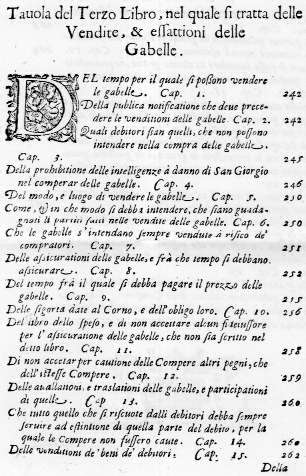 Tauola del Terzo Libro, nel quale ſi tratta delle
Vendite, & eſſattioni delle
Gabelle.
DEL tempo per il quale ſi poſſono vendere
le gabelle. Cap. 1. 242
Della publica notificatione che deue prece-
dere le venditioni delle gabelle. Cap. 2. 242
Quali debitori ſian quelli, che non poſſono
intendere nella compra delle gabelle.
Cap. 3. 245
Della prohibitione delle intelligenze à danno di San Giorgio
nel comperar delle gabelle. Cap. 4. 246
Del modo, e luogo di vendere le gabelle. Cap. 5. 250
Come, & in che modo ſi debba intendere, che ſiano guada-
gnati li partiti fatti nelle vendite delle gabelle. Cap. 6. 250
Che le gabelle s'intendano ſempre vendute à riſico de'
compratori. Cap. 7. 251
Delle aſſicurationi delle gabelle, e frà che tempo ſi debbano
aſſicurare. Cap. 8. 252
Del tempo frà il quale ſi debba pagare il prezzo delle
gabelle. Cap. 9. 255
Delle ſigortà date al Corno, e dell'obligo loro. Cap. 10. 256
Del libro dello ſpeſo, e di non accettare alcun fideiuſſore
per l'aſſicuratione delle gabelle, che non ſia ſcritto nel
detto libro. Cap. 11. 258
Di non accettar per cautione delle Compere altri pegni, che
dell'iſteſſe Compere. Cap. 12. 259
Delle auallationi, e traslationi delle gabelle, e participationi
di quelle. Cap. 13. 260
Che tutto quello che ſi riſcuote dalli debitori debba ſempre
ſeruire ad eſtintione di quella parte del debito, per la
quale le Compere non fuſſero caute. Cap. 14. 260
Delle venditioni de' beni de' debitori. Cap. 15. 262
Della